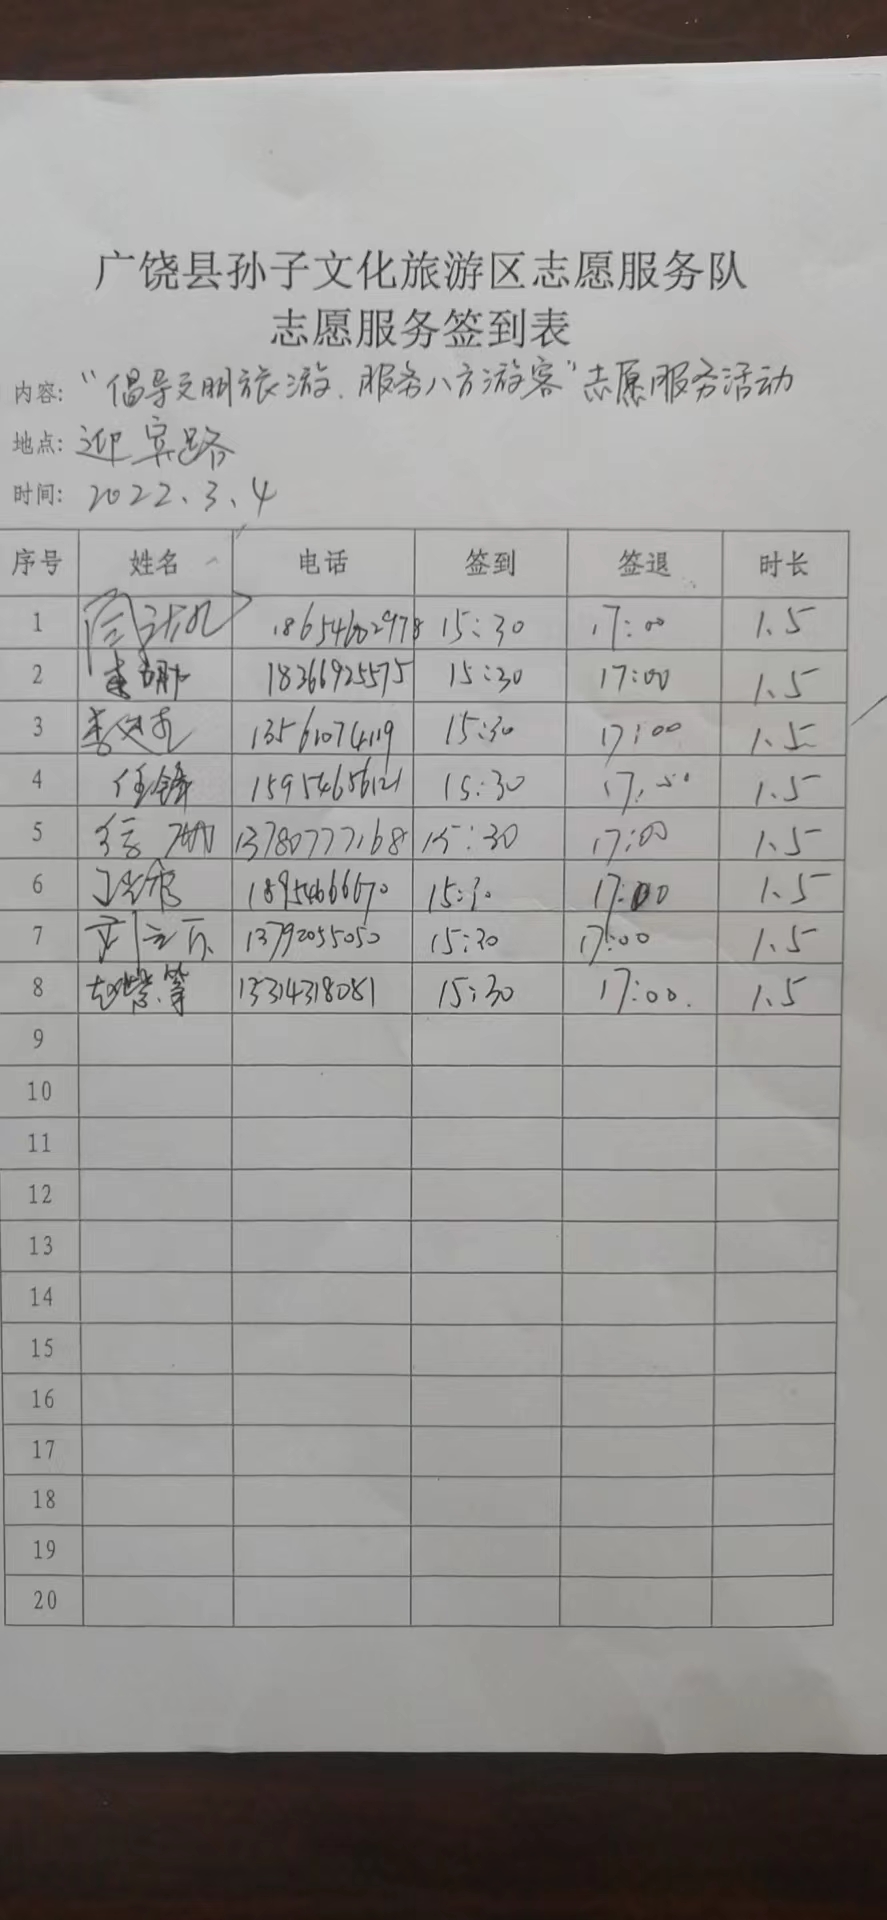 广饶县孙子文化旅游区志愿服务队
志愿服务签到表
内容: “倡导文明旅游、服务八方游客”志愿服务活动
地点: 迎宾路
时间: 2022.3.4
序号 姓名 电话 签到 签退 时长
1 18654602978 15:30 17:00 1.5
2 18366925575 15:30 17:00 1.5
3 13561074119 15:30 17:00 1.5
4 任锋 15954656121 15:30 1.5
5 13780777168 15:30 17:00 1.5
6 18954666670 15:30 17:00 1.5
7 13792055050 15:30 17:00 1.5
8 15:30 17:00. 1.5
9
10
11
12
13
14
15
16
17
18
19
20